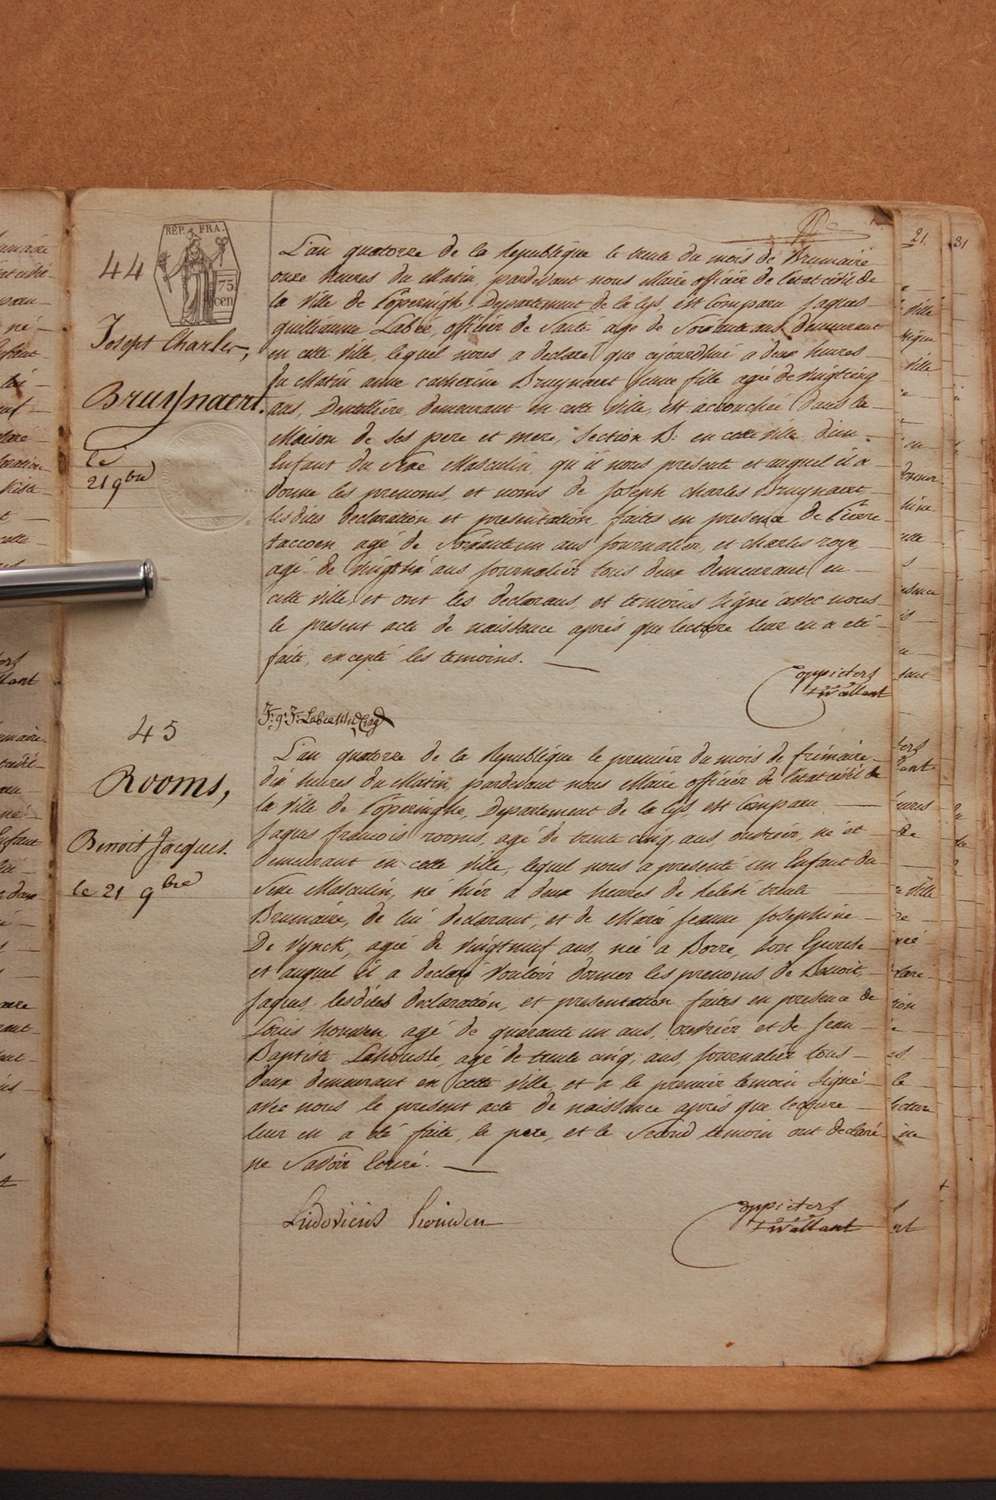 21.
31
44
RÉP. FRA.
75
cen
Joseph Charles,
Bruÿnaert.
le
21 9bre
L'an quatorze de la Republique le trente du mois de Brumaire
onze heures du Matin pardevant nous Maire officier de l'état civil de
la ville de Poperinghe, Departement de la Lys, est Comparu Jaques
guilliaume Labre, officier de Santé agé de Soixante ans demeurant
en cette ville, lequel nous a declaré que cejourdhui a deux heures
du Matin anne catherine Bruynaert Jeune fille agée de Vingtcinq
ans, Dentellière demeurant en cette ville, est accouchée dans la
Maison de ses pere et mere, Section B: en cette ville, d'un
Enfant du Sexe Masculin, qu'il nous presente et auquel il a
donné les prenoms, et noms de Joseph Charles Bruynaert
lesdites declaration et presentation faites en presence de Pierre
taccoen, agé de Soixante un ans Journalier, et charles roye
agé de Vingtsix ans Journalier tous deux demeurant en
cette ville, et ont les declarans, et temoins signé avec nous
le present acte de naissance après que lecture leur en a eté
faite, excepté les temoins.
Coppieters
t'wallant
45
Rooms,
Benoit Jacques.
le 21 9bre
L'an quatorze de la Republique le premier du mois de frimaire
dix heures du Matin pardevant nous Maire officier de l'état civil de
la ville de Poperinghe, Departement de la Lys, est Comparu
Jaques francois rooms, agé de trente cinq ans ouvrier, né et
demeurant en cette ville, lequel nous a presenté un Enfant du
Sexe Masculin, né hier a deux heures de relevée trente
Brumaire, de lui declarant, et de Marie Jeanne Josephine
De Vynck, agée de Vingtneuf ans, née a Borre, son Epouse
et auquel il a declaré vouloir donner les prenoms de Benoit
Jaques, lesdites declaration, et presentation faites en presence de
Louis houwen, agé de quarante un ans, ouvrier et de Jean
Baptiste Lahousse, agé de trente cinq ans, Journalier tous
deux demeurant en cette ville, et a le premier temoin signé
avec nous le present acte de naissance après que lecture
leur en a eté faite, le pere, et le Second temoin ont declaré
ne Savoir Ecrire.
Ludovicus houwen
Coppieters
t'wallant